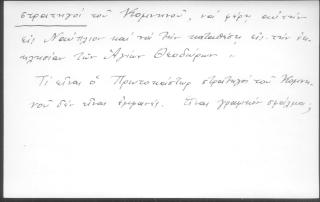 στρατηγοί τοῦ Κομνηνοῦ, νά φέρῃ αὐτήν
εἰς Ναύπλιον καί νά τήν καταθέσῃ εἰς τήν ἐκ-
κλησίαν τῶν Ἁγίων Θεοδώρων.
Τί εἶναι ὁ Πρωτοκάστωρ στρατηγοί τοῦ Κομνη-
νοῦ δέν εἶναι ἐμφανές. Εἶναι γραφικόν σφάλμα;